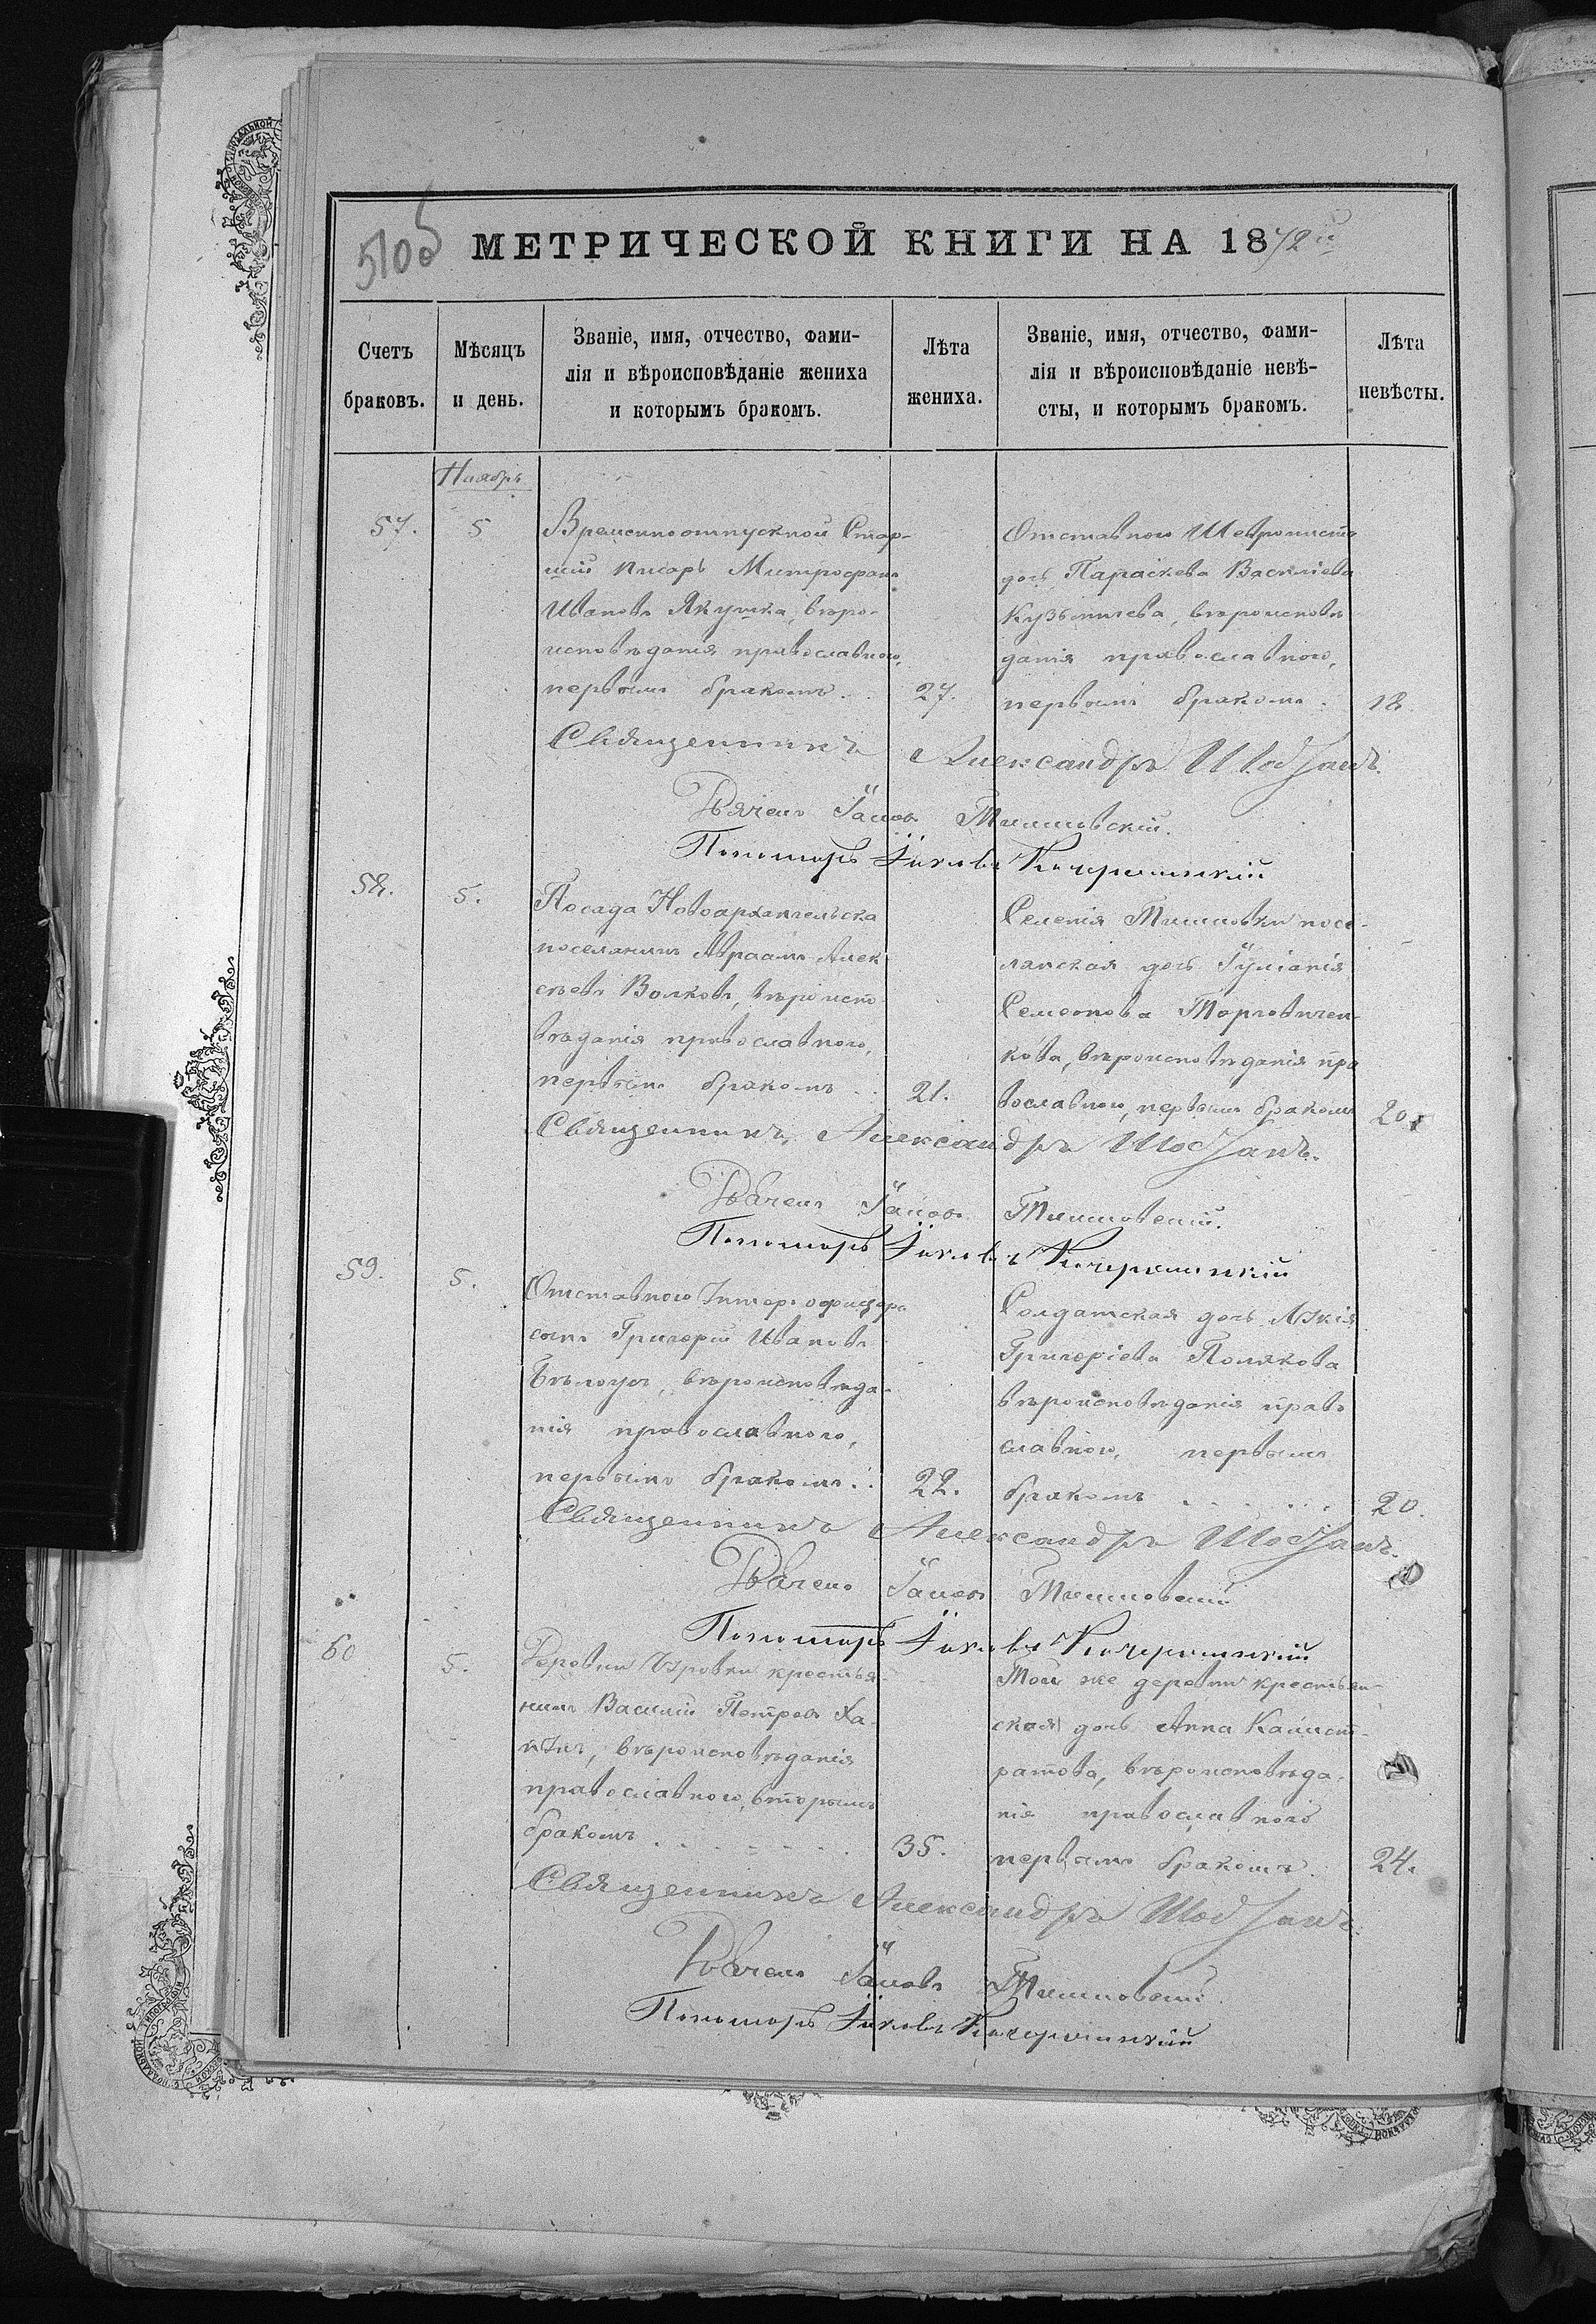 510б МЕТРИЧЕСКОЙ КНИГИ НА 1872й
Счетъ браковъ.
Мѣсяцъ и день.
Званіе, имя, отчество, фами-
лія и вѣроисповѣданіе жениха
и которымъ бракомъ.
Лѣта жениха.
Званіе, имя, отчество, фами-
лія и вѣроисповѣданіе невѣ-
сты, и которымъ бракомъ.
Лѣта невѣсты.
Ноябрь
57. 5
Временноотпускной Стар-
шій писарь Митрофанъ
Ивановъ Якушка, вѣро-
исповѣданія православного,
первымъ бракомъ. 27.
Отставного
дочь Параскева Василіева
Кузьмичева, вѣроисповѣ
данія православного,
первымъ бракомъ. 18
Священникъ Александръ
Дьячекъ Тишковскій.
Пономарь Іаковъ
58. 5.
Посада Новоархангельска
поселянинъ Авраамъ Алек
сѣевъ Волковъ, вѣроиспо
вѣданія православного,
первымъ бракомъ 21.
Селенія Тишковки посе-
лянская дочь Іуліанія
Семеонова Торговичен-
кова, вѣроисповѣданія пра
вославного, первымъ бракомъ 20.
Священникъ Александръ
Дьячекъ Тишковскій.
Пономарь Іаковъ
59. 5.
Отставного Унтеръ офицера
сынъ Григорій Ивановъ
Бѣлоусъ, вѣроисповѣда-
нія православного,
первымъ бракомъ. 22.
Солдатская дочь
Григоріева Полякова
вѣроисповѣданія право
славного, первымъ
бракомъ 20.
Священникъ Александръ
Дьячекъ Тишковскій
Пономарь Іаковъ
60 5.
Деревни крестья-
нинъ Василій Петровъ Ха-
вѣроисповѣданія
православного, вторымъ
бракомъ 35.
Той же деревни крестьян-
ская дочь Анна Калист-
ратова, вѣроисповѣда-
нія православного
первымъ бракомъ 24.
Священникъ Александръ
Дьячекъ Тишковскій
Пономарь Іаковъ